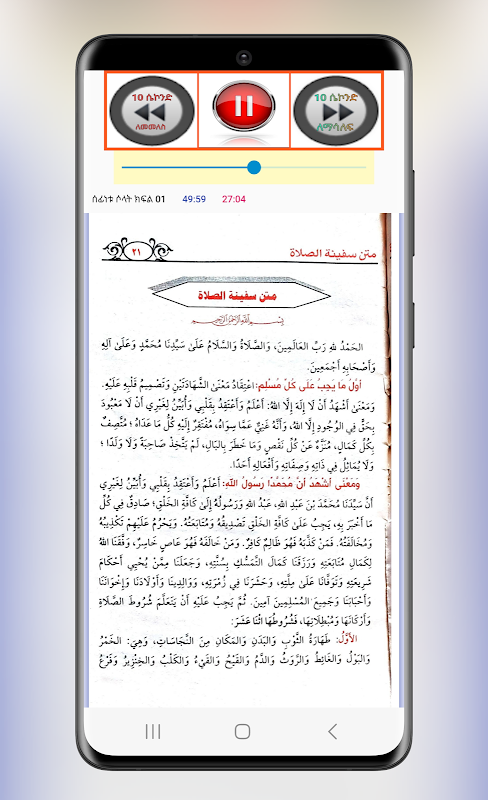 10 ሴኮንድ
ለመመለስ
10 ሴኮንድ
ለማሳለፍ
ሰፊነቱ ሶላት ክፍል 01 49:59 27:04
متن سفينة الصلاة
٢١
متن سفينة الصلاة
بِسْمِ اللهِ الرَّحْمٰنِ الرَّحِيمِ
الحَمْدُ للهِ رَبِّ العَالَمِينَ، وَالصَّلَاةُ وَالسَّلَامُ عَلَىٰ سَيِّدِنَا مُحَمَّدٍ وَعَلَىٰ آلِهِ
وَأَصْحَابِهِ أَجْمَعِينَ.
أَوَّلُ مَا يَجِبُ عَلَىٰ كُلِّ مُسْلِمٍ: اعْتِقَادُ مَعْنَىٰ الشَّهَادَتَيْنِ وَتَصْمِيمُ قَلْبِهِ عَلَيْهِ.
وَمَعْنَىٰ أَشْهَدُ أَنْ لَا إِلَهَ إِلَّا اللهُ: أَعْلَمُ وَأَعْتَقِدُ بِقَلْبِي وَأُبَيِّنُ لِغَيْرِي أَنْ لَا مَعْبُودَ
بِحَقٍّ فِي الوُجُودِ إِلَّا اللهُ، وَأَنَّهُ غَنِيٌّ عَمَّا سِوَاهُ، مُفْتَقِرٌ إِلَيْهِ كُلُّ مَا عَدَاهُ؛ مُتَّصِفٌ
بِكُلِّ كَمَالٍ، مُنَزَّهٌ عَنْ كُلِّ نَقْصٍ وَمَا خَطَرَ بِالبَالِ، لَمْ يَتَّخِذْ صَاحِبَةً وَلَا وَلَدًا؛
وَلَا يُمَاثِلُ فِي ذَاتِهِ وَصِفَاتِهِ وَأَفْعَالِهِ أَحَدًا.
وَمَعْنَى أَشْهَدُ أَنَّ مُحَمَّدًا رَسُولُ اللهِ: أَعْلَمُ وَأَعْتَقِدُ بِقَلْبِي وَأُبَيِّنُ لِغَيْرِي
أَنَّ سَيِّدَنَا مُحَمَّدَ بْنَ عَبْدِ اللهِ، عَبْدُ اللهِ وَرَسُولُهُ إِلَىٰ كَافَّةِ الخَلْقِ؛ صَادِقٌ فِي كُلِّ
مَا أَخْبَرَ بِهِ، يَجِبُ عَلَىٰ كَافَّةِ الخَلْقِ تَصْدِيقُهُ وَمُتَابَعَتُهُ. وَيَحْرُمُ عَلَيْهِمْ تَكْذِيبُهُ
وَمُخَالَفَتُهُ. فَمَنْ كَذَّبَهُ فَهُوَ ظَالِمٌ كَافِرٌ. وَمَنْ خَالَفَهُ فَهُوَ عَاصٍ خَاسِرٌ، وَفَّقَنَا اللهُ
لِكَمَالِ مُتَابَعَتِهِ وَرَزَقَنَا كَمَالَ التَّمَسُّكِ بِسُنَّتِهِ، وَجَعَلَنَا مِمَّنْ يُحْيِي أَحْكَامَ
شَرِيعَتِهِ وَتَوَفَّانَا عَلَىٰ مِلَّتِهِ، وَحَشَرَنَا فِي زُمْرَتِهِ، وَوَالِدِينَا وَأَوْلَادَنَا وَإِخْوَانَنَا
وَأَحْبَابَنَا وَجَمِيعَ المُسْلِمِينَ آمِينَ. ثُمَّ يَجِبُ عَلَيْهِ أَنْ يَتَعَلَّمَ شُرُوطَ الصَّلَاةِ
وَأَرْكَانَهَا وَمُبْطِلَاتِهَا، فَشُرُوطُهَا اثْنَا عَشَرَ:
الأَوَّلُ: طَهَارَةُ الثَّوْبِ وَالبَدَنِ وَالمَكَانِ مِنَ النَّجَاسَاتِ، وَهِيَ: الخَمْرُ
وَالبَوْلُ وَالغَائِطُ وَالرَّوْثُ وَالدَّمُ وَالقَيْحُ وَالقَيْءُ وَالكَلْبُ وَالخِنْزِيرُ وَفَرْعُ